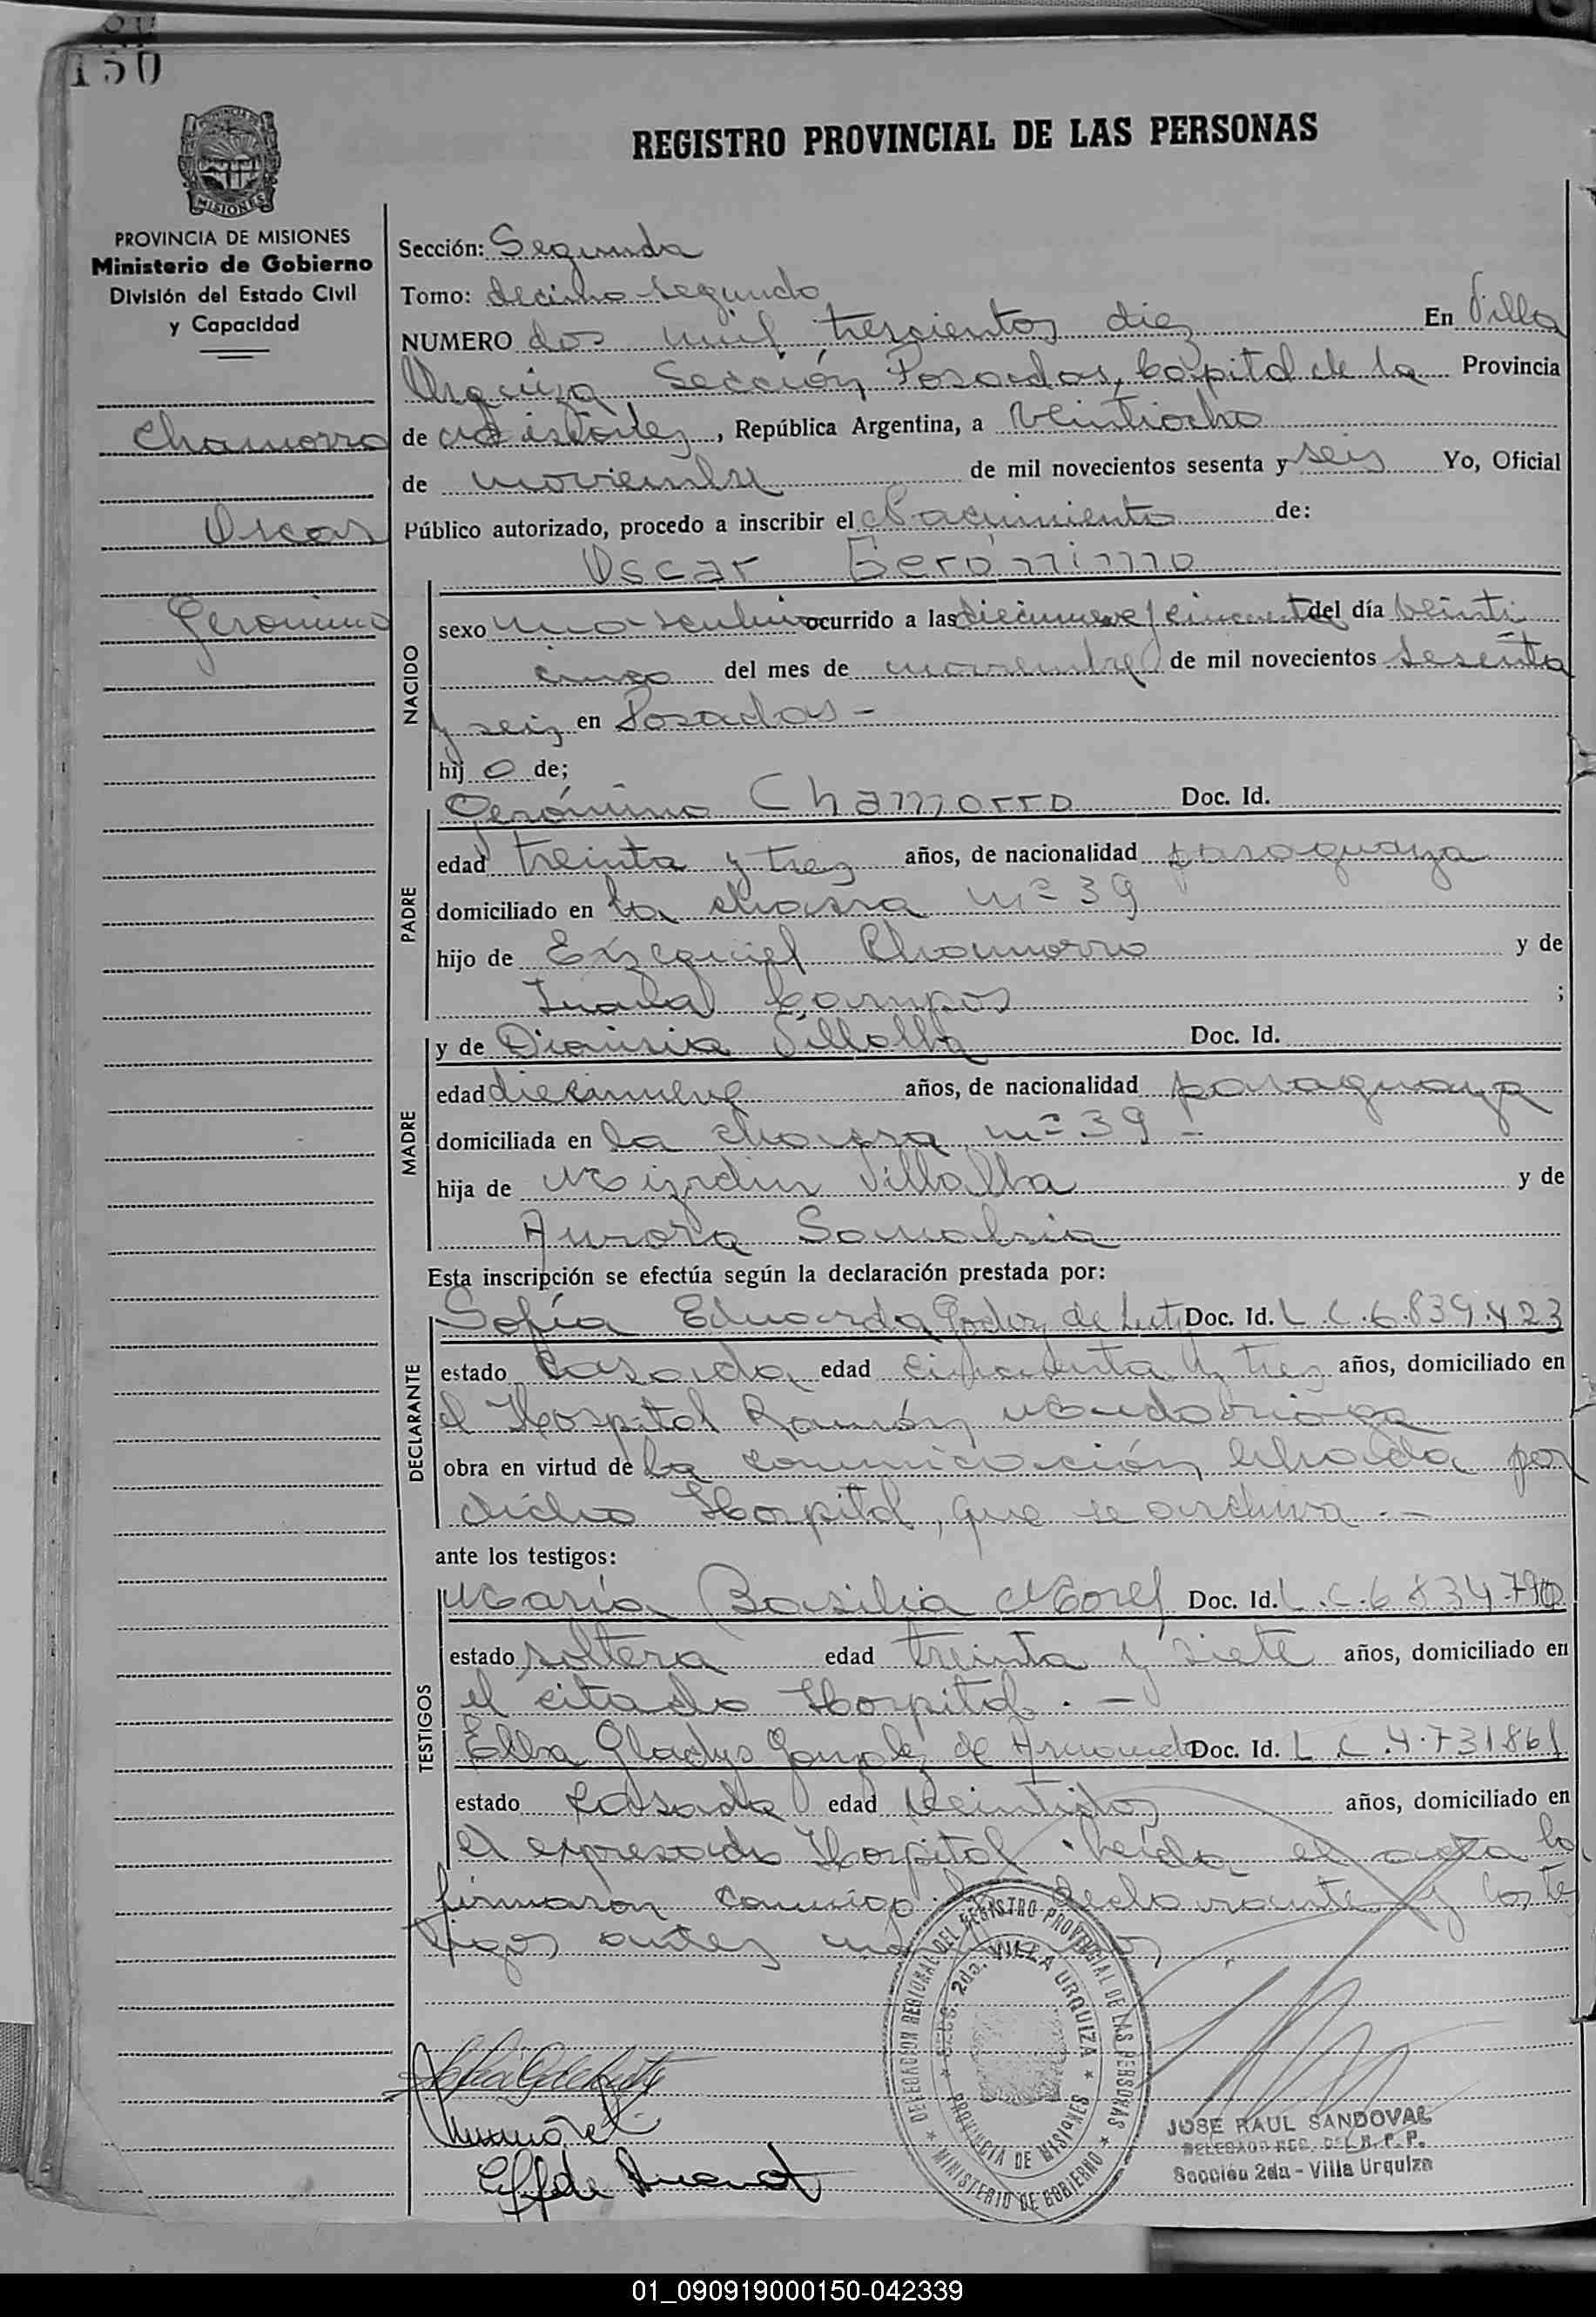 150
REGISTRO PROVINCIAL DE LAS PERSONAS
MISIONES
PROVINCIA DE MISIONES
Ministerio de Gobierno
División del Estado Civil
y Capacidad
Chamorro
Oscar
Geronimo
Sección: Segunda
Tomo: decimo segundo
NUMERO dos mil trescientos diez En Villa
Urquiza Sección Posadas, Capital de la Provincia
de Misiones, República Argentina, a veintiocho
de noviembre de mil novecientos sesenta y seis Yo, Oficial
Público autorizado, procedo a inscribir el Nacimiento de:
Oscar Gerónimo
NACIDO
sexo masculino ocurrido a las diecinueve y cincuenta del día veinti
cinco del mes de noviembre de mil novecientos sesenta
y seis en Posadas -
hijo de;
PADRE
Gerónimo Chamorro Doc. Id.
edad treinta y tres años, de nacionalidad paraguaya
domiciliado en la chacra nº 39
hijo de Exequiel Chamorro y de
Juana Campos ;
MADRE
y de Dionisia Villalba Doc. Id.
edad diecinueve años, de nacionalidad paraguaya
domiciliada en la chacra nº 39 -
hija de Villalba y de
Aurora
Esta inscripción se efectúa según la declaración prestada por:
DECLARANTE
Sofía Eduarda Godoy de Doc. Id. L.C.6.839.423
estado casada edad cincuenta y tres años, domiciliado en
el Hospital Ramón Madariaga
obra en virtud de la comunicación librada por
dicho Hospital, que se archiva . -
ante los testigos:
TESTIGOS
María Basilia Morel Doc. Id. L.C.6.834.790
estado soltera edad treinta y siete años, domiciliado en
el citado Hospital . -
Elba Gladys Gonzalez de Doc. Id. L.C.4.731861
estado casada edad veintidos años, domiciliado en
el expresado Hospital. Leída el acta la
firmaron conmigo declarante y los tes
tigos antes
DELEGACION REGIONAL DEL REGISTRO PROVINCIAL DE LAS PERSONAS
SECC. 2da. VILLA URQUIZA
PROVINCIA DE MISIONES
MINISTERIO DE GOBIERNO
JOSE RAUL SANDOVAL
DELEGADO REG. DEL R. P. P.
Sección 2da - Villa Urquiza
01_090919000150-042339